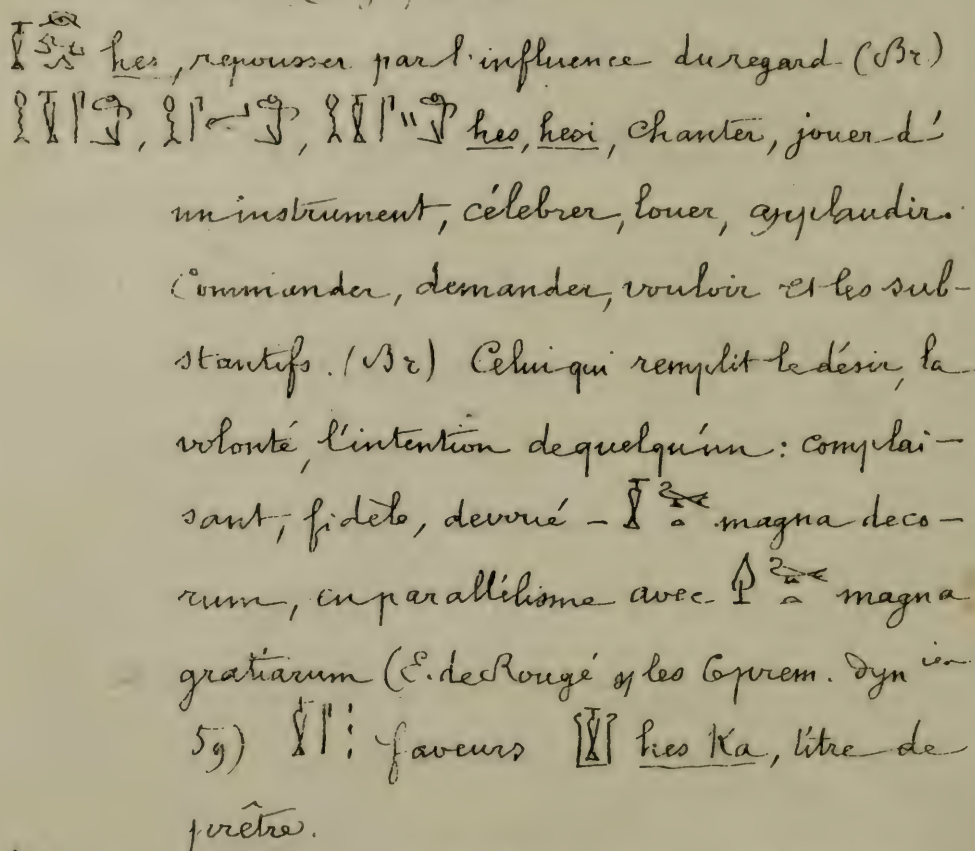 hes, repousser par l'influence du regard (Br)
, , hes, hesi, chanter, jouer d'
un instrument, célebrer, louer, applaudir.
Commander, demander, vouloir et les sub-
stantifs. (Br) Celui qui remplit le désir, la
volonté, l'intention de quelqu'un : complai-
sant, fidèle, devoué - magna deco-
rum, en parallélisme avec magna
gratiarum (E. de Rougé les 6 prem. Dyn
59) faveurs hes Ka, titre de
prêtre.